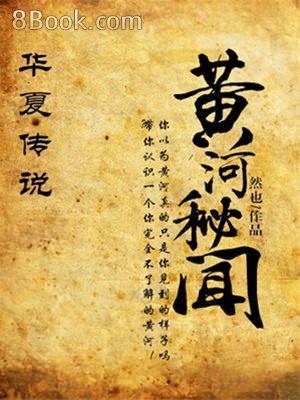 8Book.com
华夏传说
黄河秘闻
然也/作品
你以为黄河真的只是你见到的样子吗
带你认识一个你完全不了解的黄河！